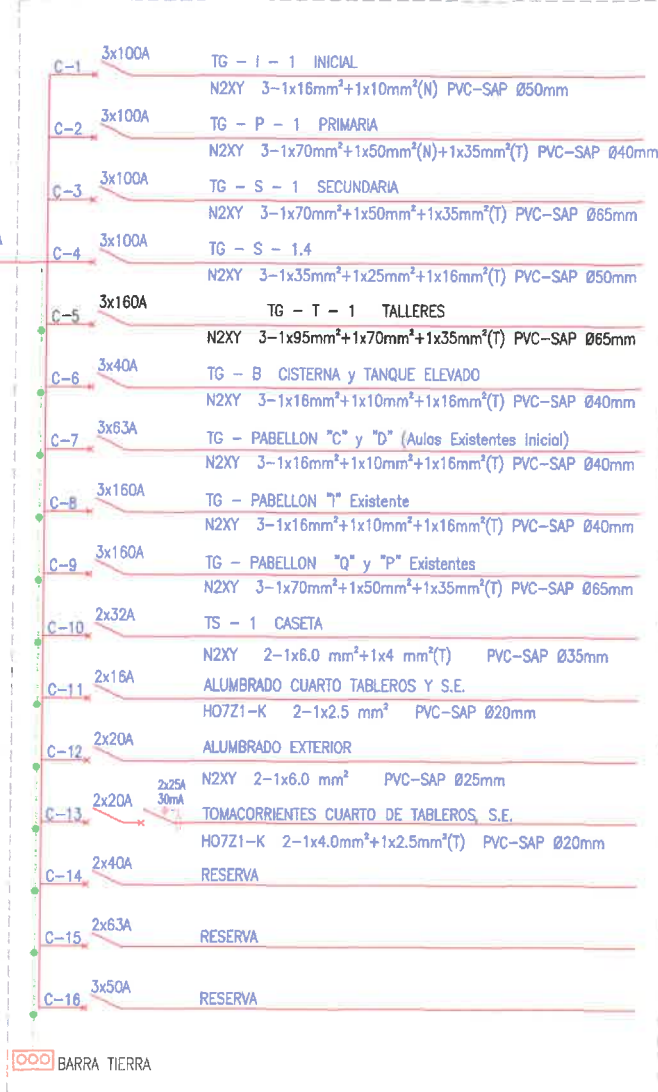 C-1 3x100A TG - I - 1 INICIAL
N2XY 3-1x16mm²+1x10mm²(N) PVC-SAP Ø50mm
C-2 3x100A TG - P - 1 PRIMARIA
N2XY 3-1x70mm²+1x50mm²(N)+1x35mm²(T) PVC-SAP Ø40mm
C-3 3x100A TG - S - 1 SECUNDARIA
N2XY 3-1x70mm²+1x50mm²+1x35mm²(T) PVC-SAP Ø65mm
C-4 3x100A TG - S - 1.4
N2XY 3-1x35mm²+1x25mm²+1x16mm²(T) PVC-SAP Ø50mm
C-5 3x160A TG - T - 1 TALLERES
N2XY 3-1x95mm²+1x70mm²+1x35mm²(T) PVC-SAP Ø65mm
C-6 3x40A TG - B CISTERNA y TANQUE ELEVADO
N2XY 3-1x16mm²+1x10mm²+1x16mm²(T) PVC-SAP Ø40mm
C-7 3x63A TG - PABELLON "C" y "D" (Aulas Existentes Inicial)
N2XY 3-1x16mm²+1x10mm²+1x16mm²(T) PVC-SAP Ø40mm
C-8 3x160A TG - PABELLON "I" Existente
N2XY 3-1x16mm²+1x10mm²+1x16mm²(T) PVC-SAP Ø40mm
C-9 3x160A TG - PABELLON "Q" y "P" Existentes
N2XY 3-1x70mm²+1x50mm²+1x35mm²(T) PVC-SAP Ø65mm
C-10 2x32A TS - 1 CASETA
N2XY 2-1x6.0 mm²+1x4 mm²(T) PVC-SAP Ø35mm
C-11 2x16A ALUMBRADO CUARTO TABLEROS Y S.E.
HO7Z1-K 2-1x2.5 mm² PVC-SAP Ø20mm
C-12 2x20A ALUMBRADO EXTERIOR
N2XY 2-1x6.0 mm² PVC-SAP Ø25mm
2x25A
30mA
C-13 2x20A TOMACORRIENTES CUARTO DE TABLEROS, S.E.
HO7Z1-K 2-1x4.0mm²+1x2.5mm²(T) PVC-SAP Ø20mm
C-14 2x40A RESERVA
C-15 2x63A RESERVA
C-16 3x50A RESERVA
BARRA TIERRA